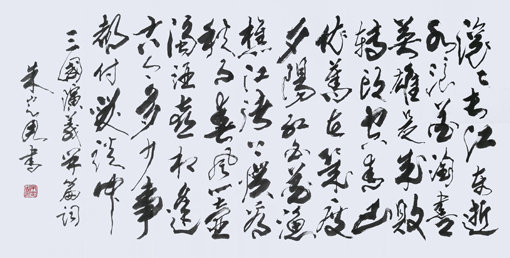 滚滚长江东逝
水浪花淘尽
英雄是非成败
转头空青山
依旧在几度
夕阳红白发渔
樵江渚上惯看
秋月春风一壶
浊酒喜相逢
古今多少事
都付笑谈中
三國演義开篇词
朱 书